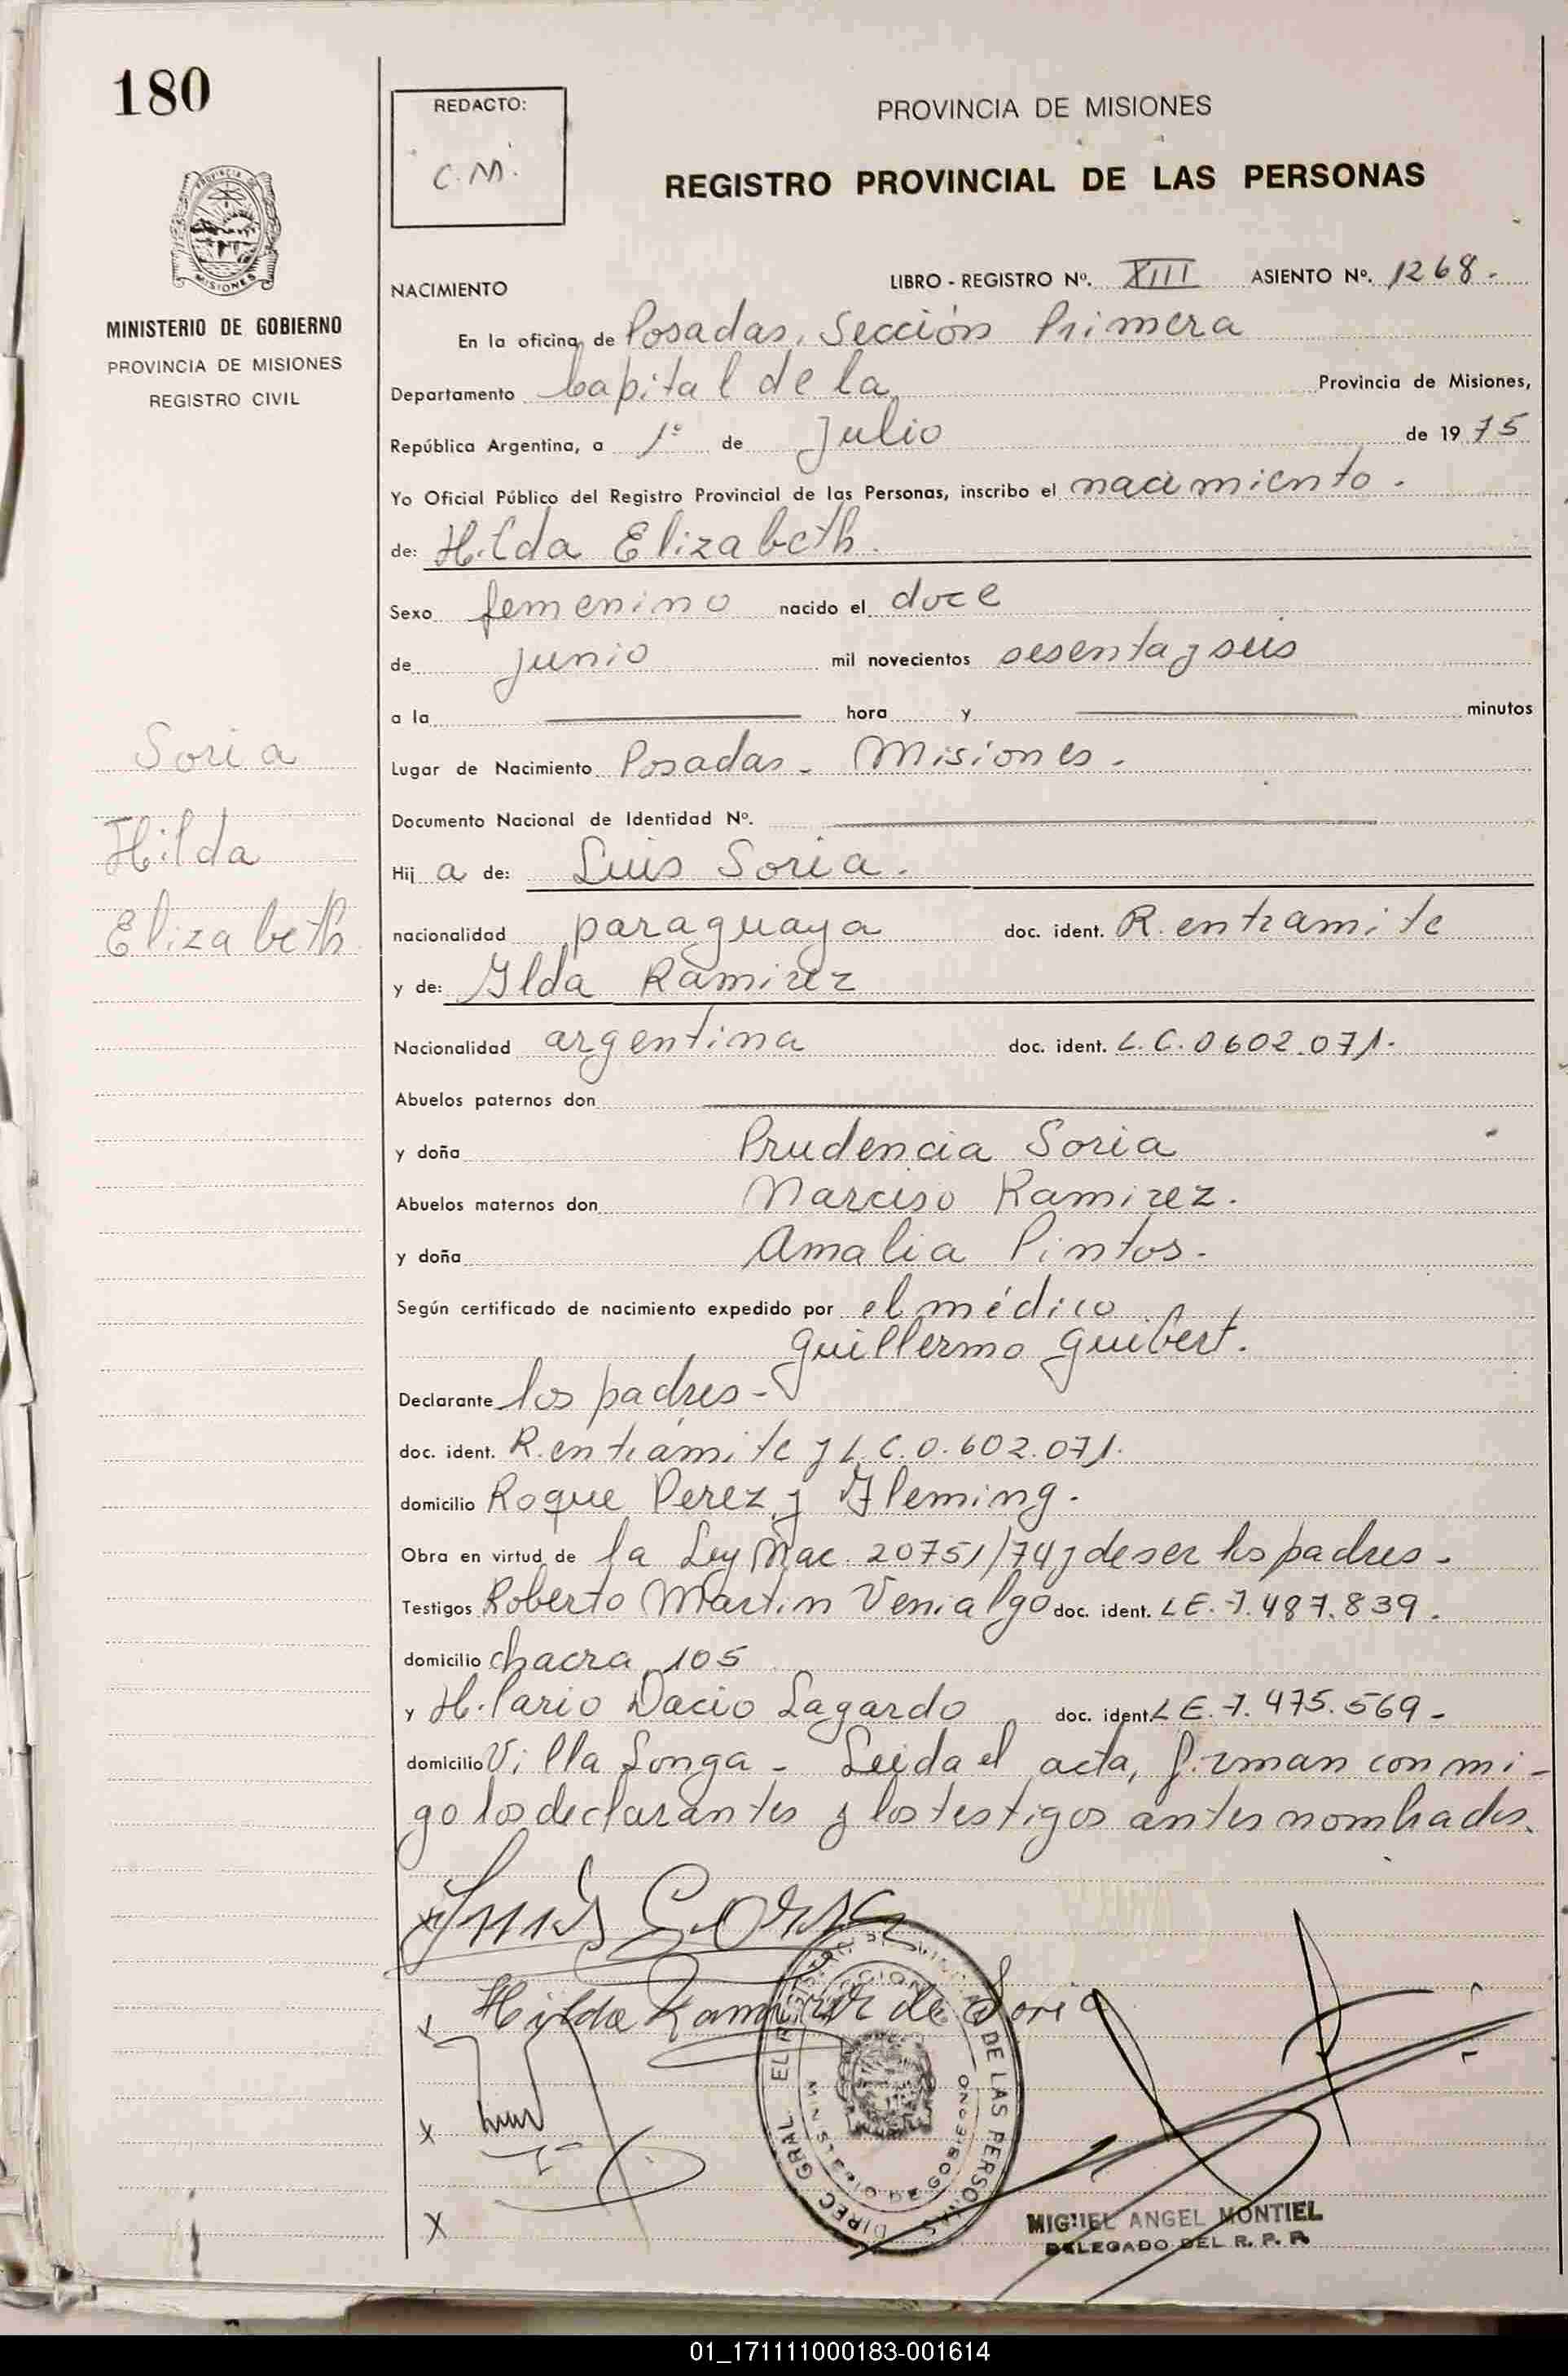 180
REDACTO:
C.M.
PROVINCIA DE MISIONES
REGISTRO PROVINCIAL DE LAS PERSONAS
PROVINCIA DE
MISIONES
MINISTERIO DE GOBIERNO
PROVINCIA DE MISIONES
REGISTRO CIVIL
NACIMIENTO LIBRO - REGISTRO Nº. XIII ASIENTO Nº. 1268.-
En la oficina de Posadas, Sección Primera
Departamento Capital de la Provincia de Misiones,
República Argentina, a 1º de Julio de 1975
Yo Oficial Público del Registro Provincial de las Personas, inscribo el nacimiento.
de: Hilda Elizabeth.
Sexo femenino nacido el doce
de junio mil novecientos sesenta y seis
a la hora y minutos
Soria
Lugar de Nacimiento Posadas - Misiones.
Documento Nacional de Identidad Nº.
Hilda
Hij a de: Luis Soria.
Elizabeth
nacionalidad paraguaya doc. ident. R. en tramite
y de: Ilda Ramirez
Nacionalidad argentina doc. ident. L.C. 0602.071.
Abuelos paternos don
y doña Prudencia Soria
Abuelos maternos don Narciso Ramirez.
y doña Amalia Pintos.
Según certificado de nacimiento expedido por el médico
Guillermo Guibert.
Declarante los padres -
doc. ident. R. en trámite y L.C. 0.602.071.
domicilio Roque Perez y Fleming.
Obra en virtud de la Ley Nac. 20751/74 y de ser los padres.
Testigos Roberto Martin Venialgo doc. ident. LE. 7.487.839.
domicilio chacra 105
y Hilario Dacio Lagardo doc. ident. LE. 7.475.569.-
domicilio Villa Longa - Leida el acta, firman conmi-
go los declarantes y los testigos antes nombrados.
x Luis Soria
x Hilda Ramirez de Soria
x
x
DIREC. GRAL. DE LAS PERSONAS
MINISTERIO DE GOBIERNO
MIGUEL ANGEL MONTIEL
DELEGADO DEL R. P. P.
01_171111000183-001614